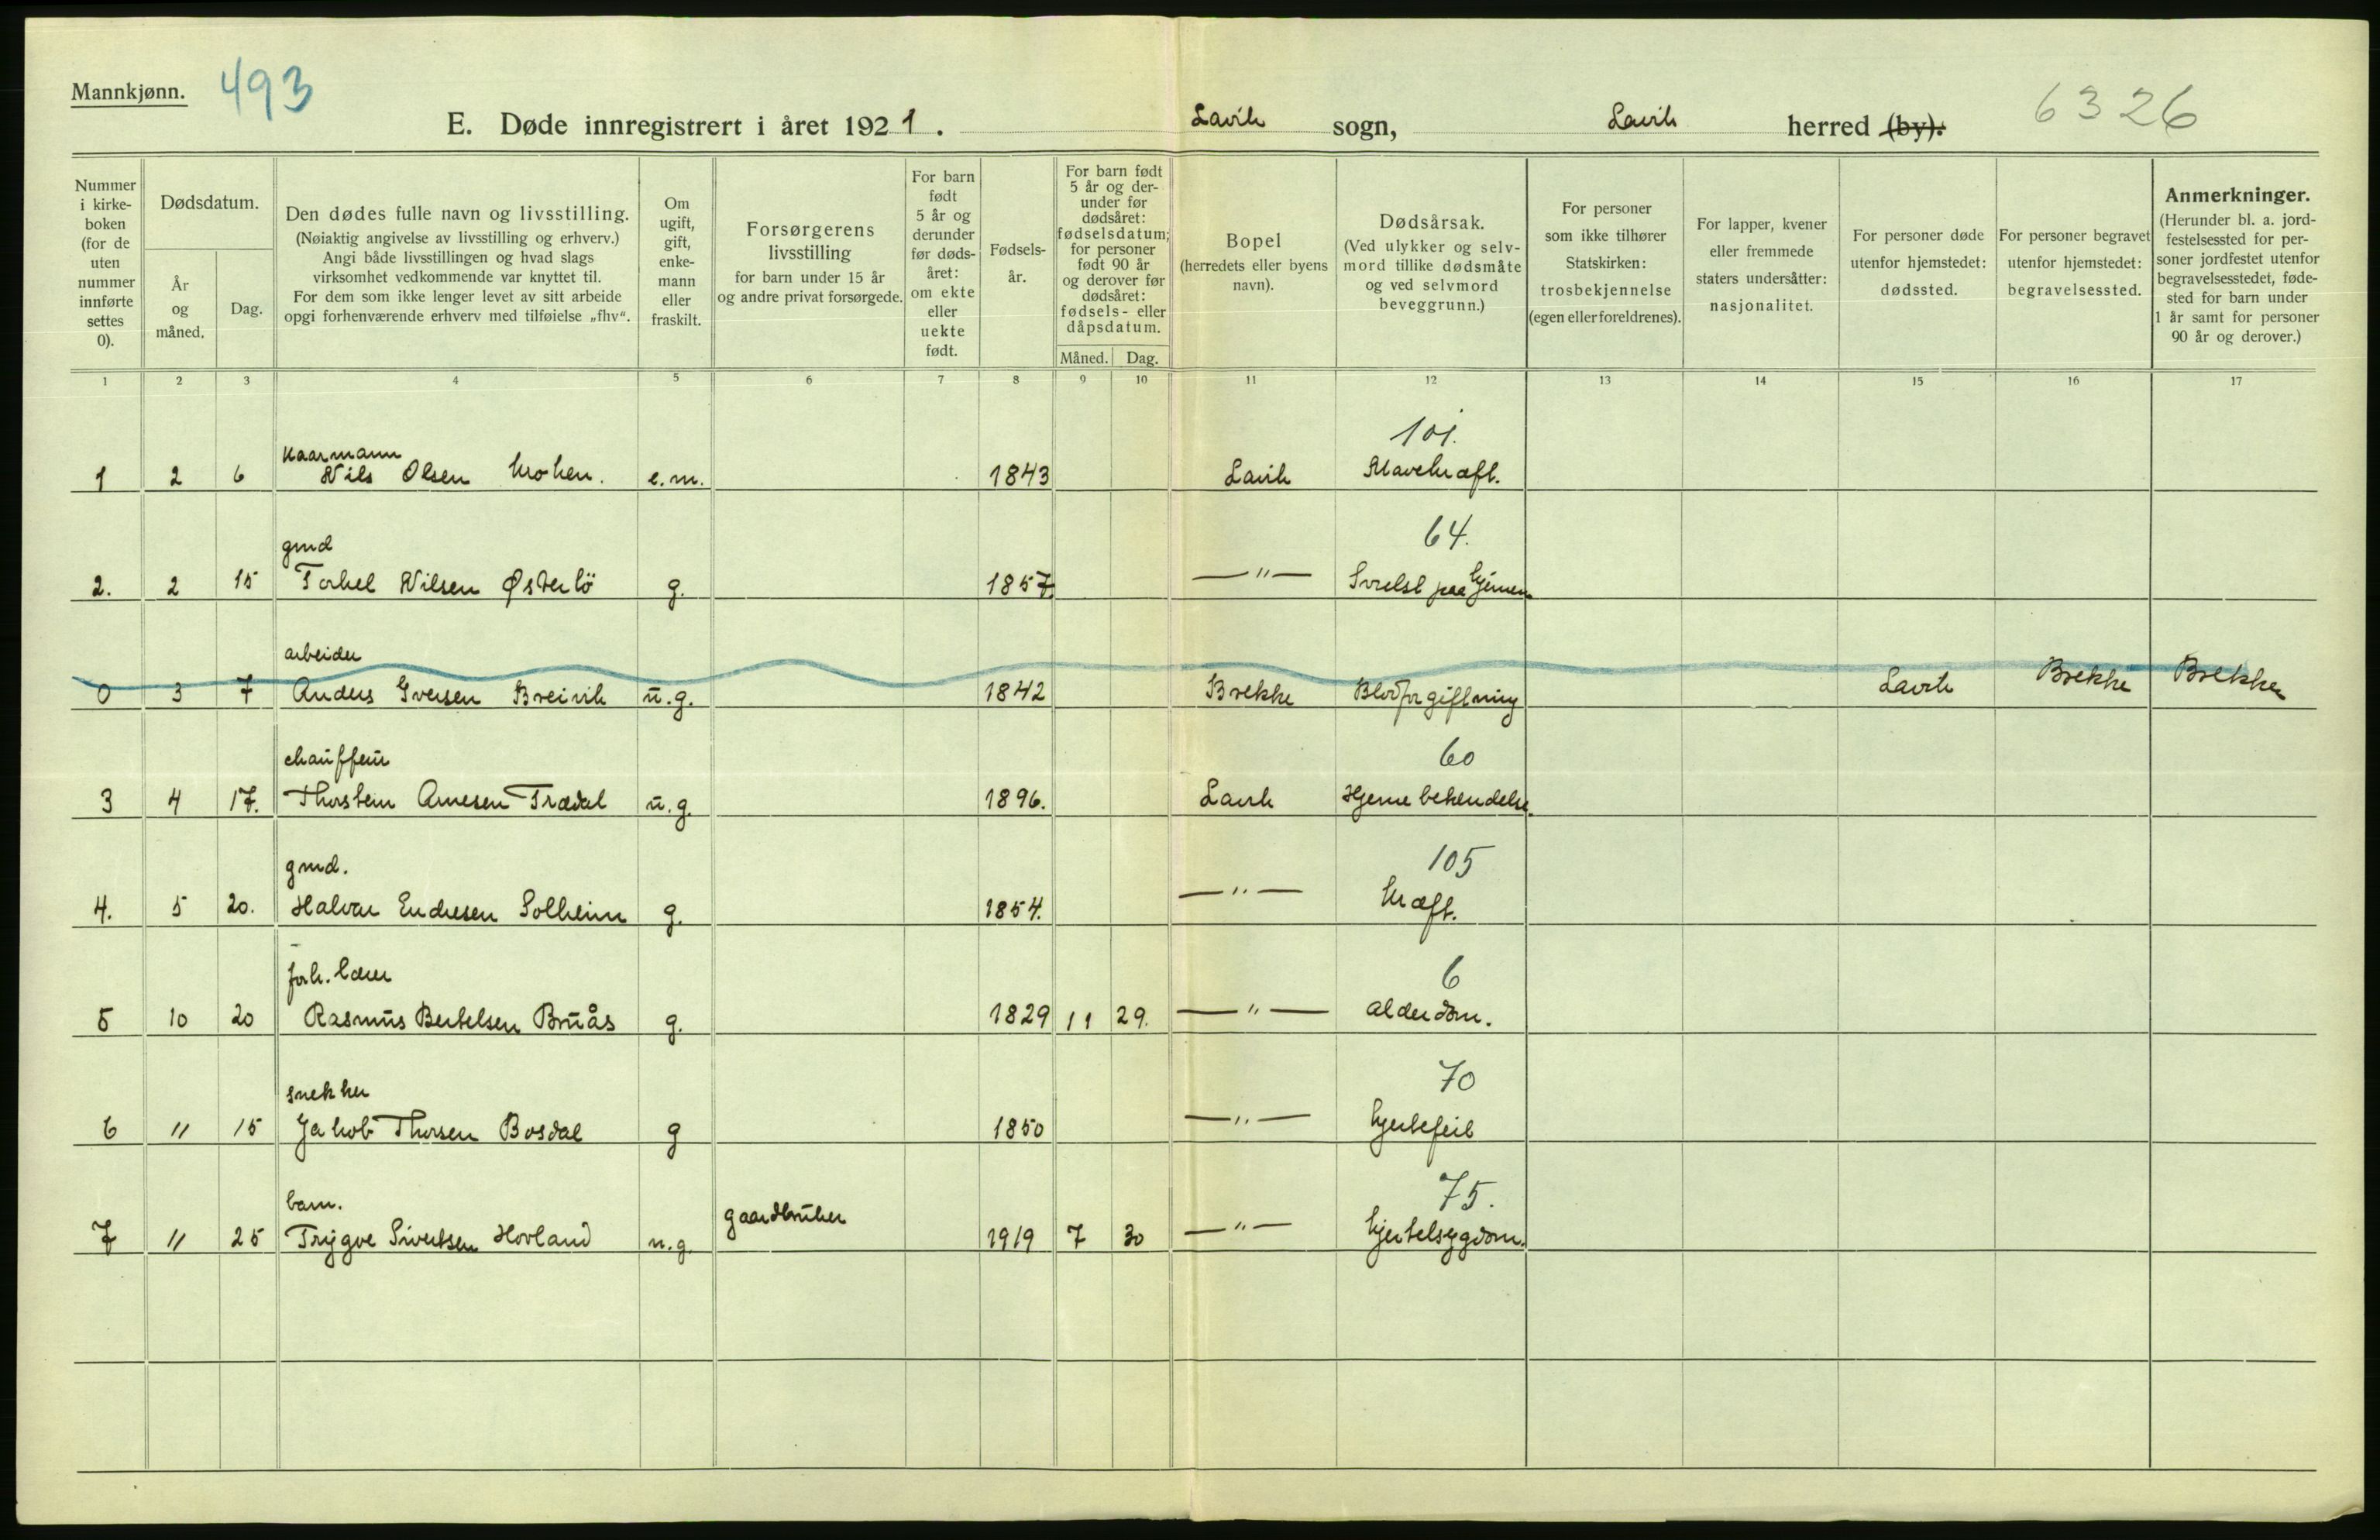 Mannkjønn. 493
E. Døde innregistrert i året 1921. Lavik sogn, Lavik herred (by). 6326
Nummer i kirke-boken (for de uten nummer innførte settes 0).
Dødsdatum.
År og måned.
Dag.
Den dødes fulle navn og livsstilling.
(Nøiaktig angivelse av livsstilling og erhverv.)
Angi både livsstillingen og hvad slags
virksomhet vedkommende var knyttet til.
For dem som ikke lenger levet av sitt arbeide
opgi forhenværende erhverv med tilføielse „fhv“.
Om ugift, gift, enke-mann eller fraskilt.
Forsørgerens
livsstilling
for barn under 15 år
og andre privat forsørgede.
For barn født 5 år og derunder før døds-året: om ekte eller uekte født.
Fødsels-år.
For barn født 5 år og der-under før dødsåret: fødselsdatum; for personer født 90 år og derover før dødsåret: fødsels- eller dåpsdatum.
Måned. Dag.
Bopel
(herredets eller byens
navn).
Dødsårsak.
(Ved ulykker og selv-
mord tillike dødsmåte
og ved selvmord
beveggrunn.)
For personer
som ikke tilhører
Statskirken:
trosbekjennelse
(egen eller foreldrenes).
For lapper, kvener
eller fremmede
staters undersåtter:
nasjonalitet.
For personer døde
utenfor hjemstedet:
dødssted.
For personer begravet
utenfor hjemstedet:
begravelsessted.
Anmerkninger.
(Herunder bl. a. jord-
festelsessted for per-
soner jordfestet utenfor
begravelsesstedet, føde-
sted for barn under
1 år samt for personer
90 år og derover.)
1 2 3 4 5 6 7 8 9 10 11 12 13 14 15 16 17
Kaarmann 101.
1 2 6 Nils Olsen Kroken. e.m. 1843 Lavik Mavekræft.
gmd 64.
2. 2 15 Torkel Nilsen Østerbö g. 1857. —"— Svulst paa hjernen
arbeider
0 3 7 Anders Iversen Breivik u.g. 1842 Brekke Blodforgiftning Lavik Brekke Brekke
chauffeur 60
3 4 17. Thorstein Arnesen Trædal u.g. 1896. Lavik Hjernebetendelse.
gmd. 105
4. 5 20. Halvar Endresen Solheim g. 1854. —"— kræft.
forh. lærer 6
5 10 20 Rasmus Bertelsen Bruås g. 1829 11 29. —"— alderdom.
snekker 70
6 11 15 Jakob Thorsen Bosdal g 1850 —"— hjertefeil
barn. 75.
7 11 25 Trygve Sivertsen Hovland u.g. gaardbruker 1919 7 30 —"— hjertesygdom.